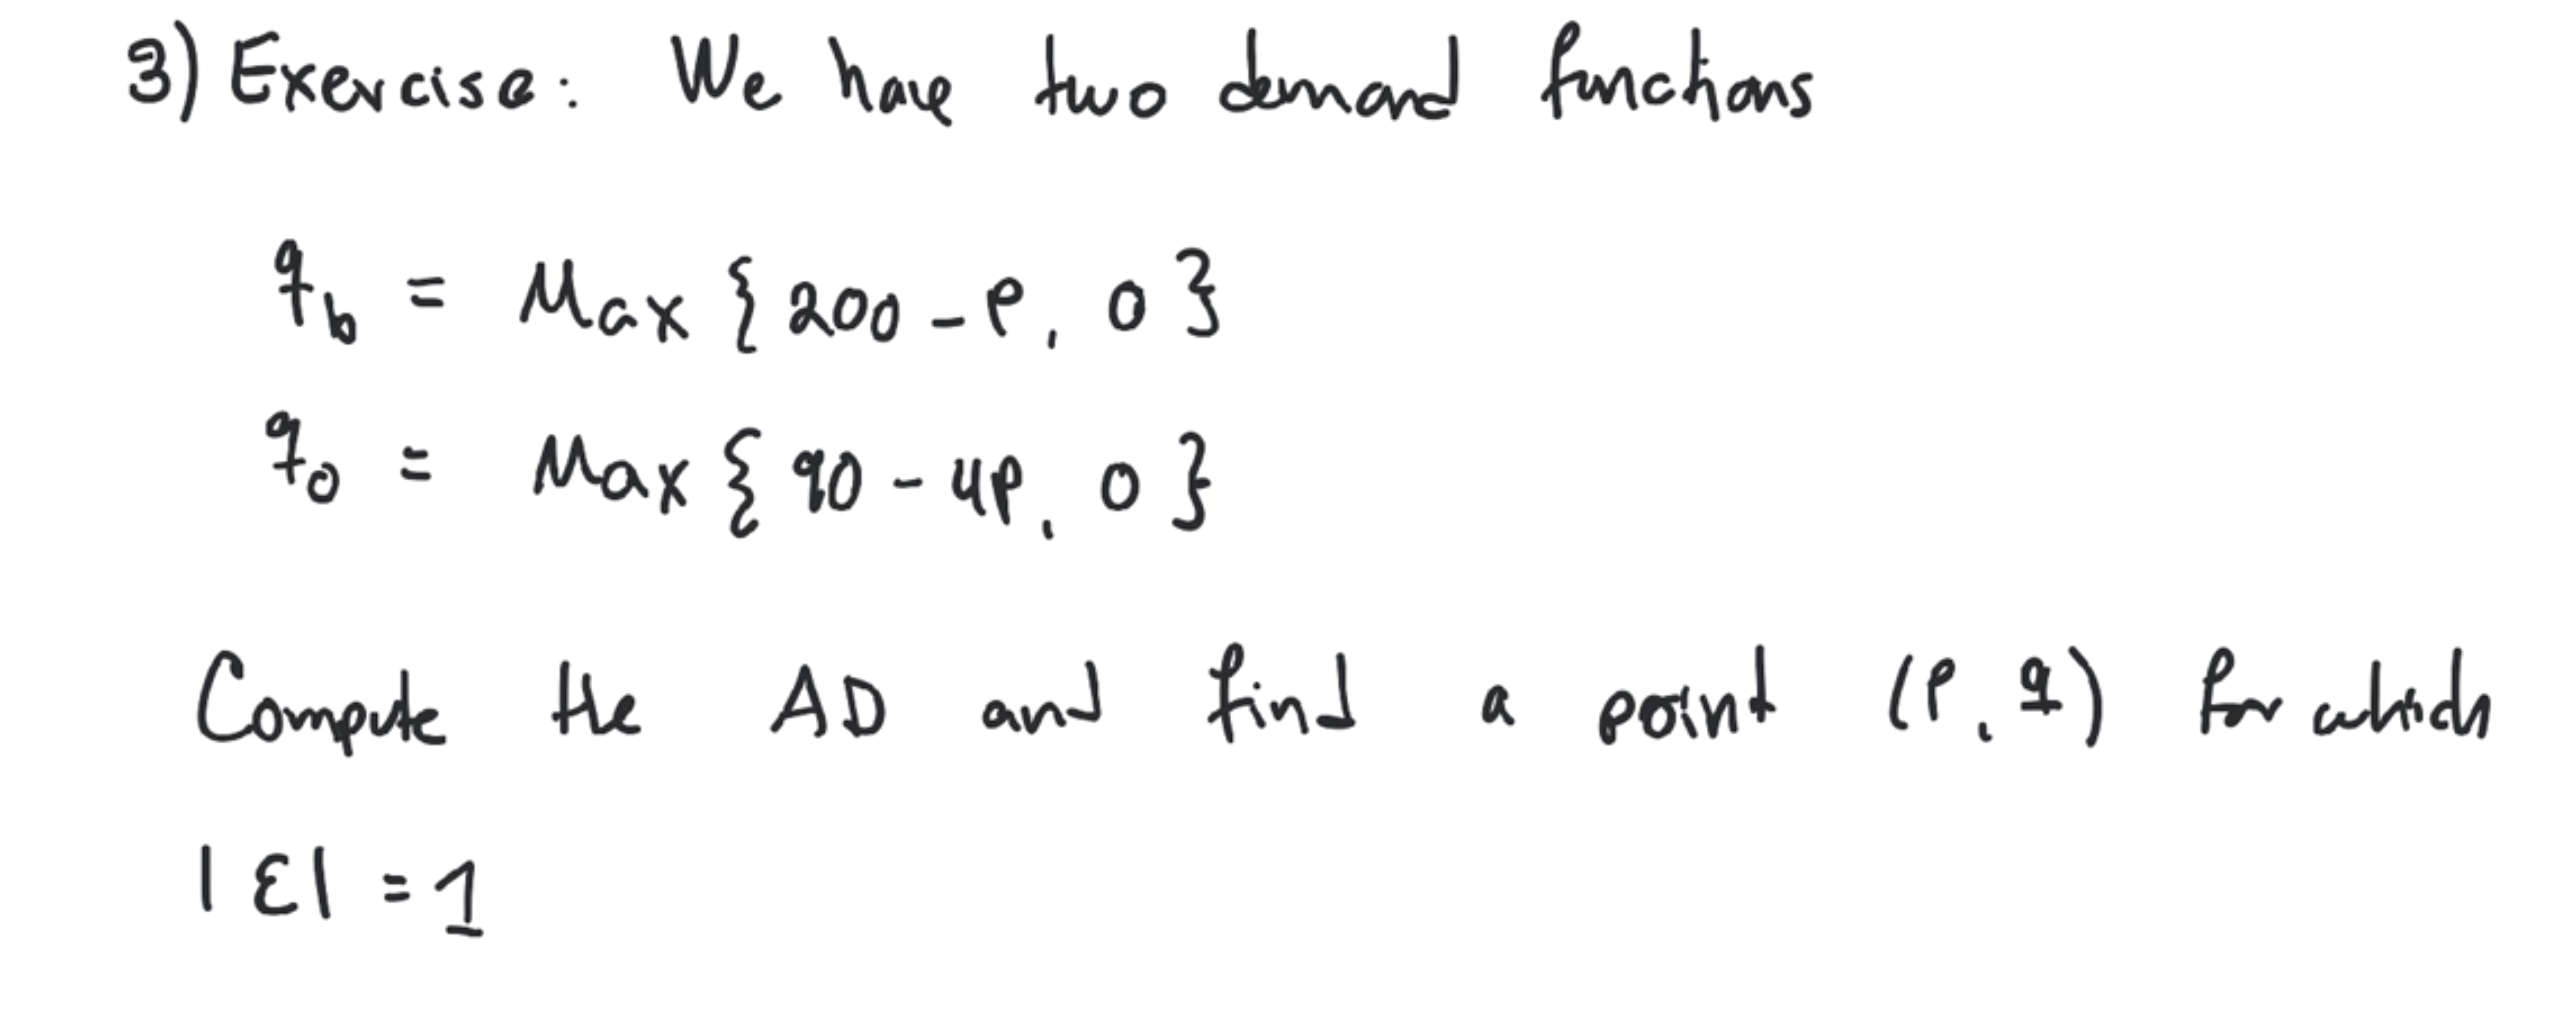 3) Exercise: We have two demand functions
q_b = Max { 200 - P, 0 }
q_0 = Max { 90 - 4P, 0 }
Compute the AD and find a point (P, q) for which
|ε| = 1